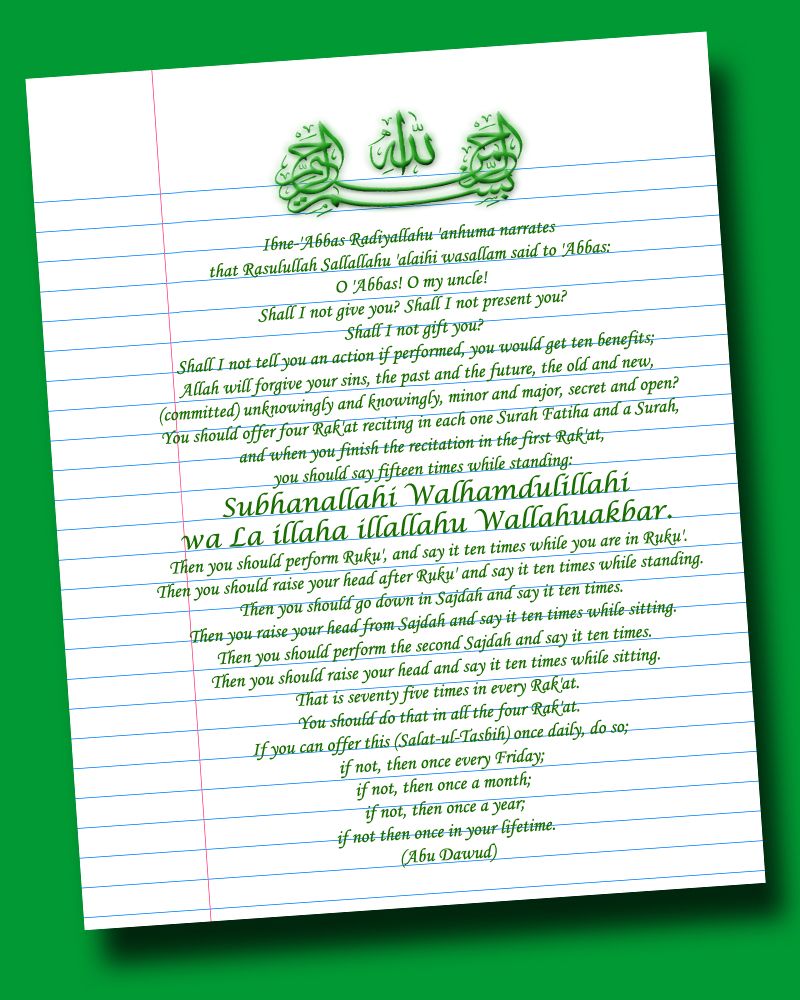 بسم الله الرحمن الرحيم
Ibne-'Abbas Radiyallahu 'anhuma narrates
that Rasulullah Sallallahu 'alaihi wasallam said to 'Abbas:
O 'Abbas! O my uncle!
Shall I not give you? Shall I not present you?
Shall I not gift you?
Shall I not tell you an action if performed, you would get ten benefits;
Allah will forgive your sins, the past and the future, the old and new,
(committed) unknowingly and knowingly, minor and major, secret and open?
You should offer four Rak'at reciting in each one Surah Fatiha and a Surah,
and when you finish the recitation in the first Rak'at,
you should say fifteen times while standing:
Subhanallahi Walhamdulillahi
wa La illaha illallahu Wallahuakbar.
Then you should perform Ruku', and say it ten times while you are in Ruku'.
Then you should raise your head after Ruku' and say it ten times while standing.
Then you should go down in Sajdah and say it ten times.
Then you raise your head from Sajdah and say it ten times while sitting.
Then you should perform the second Sajdah and say it ten times.
Then you should raise your head and say it ten times while sitting.
That is seventy five times in every Rak'at.
You should do that in all the four Rak'at.
If you can offer this (Salat-ul-Tasbih) once daily, do so;
if not, then once every Friday;
if not, then once a month;
if not, then once a year;
if not then once in your lifetime.
(Abu Dawud)